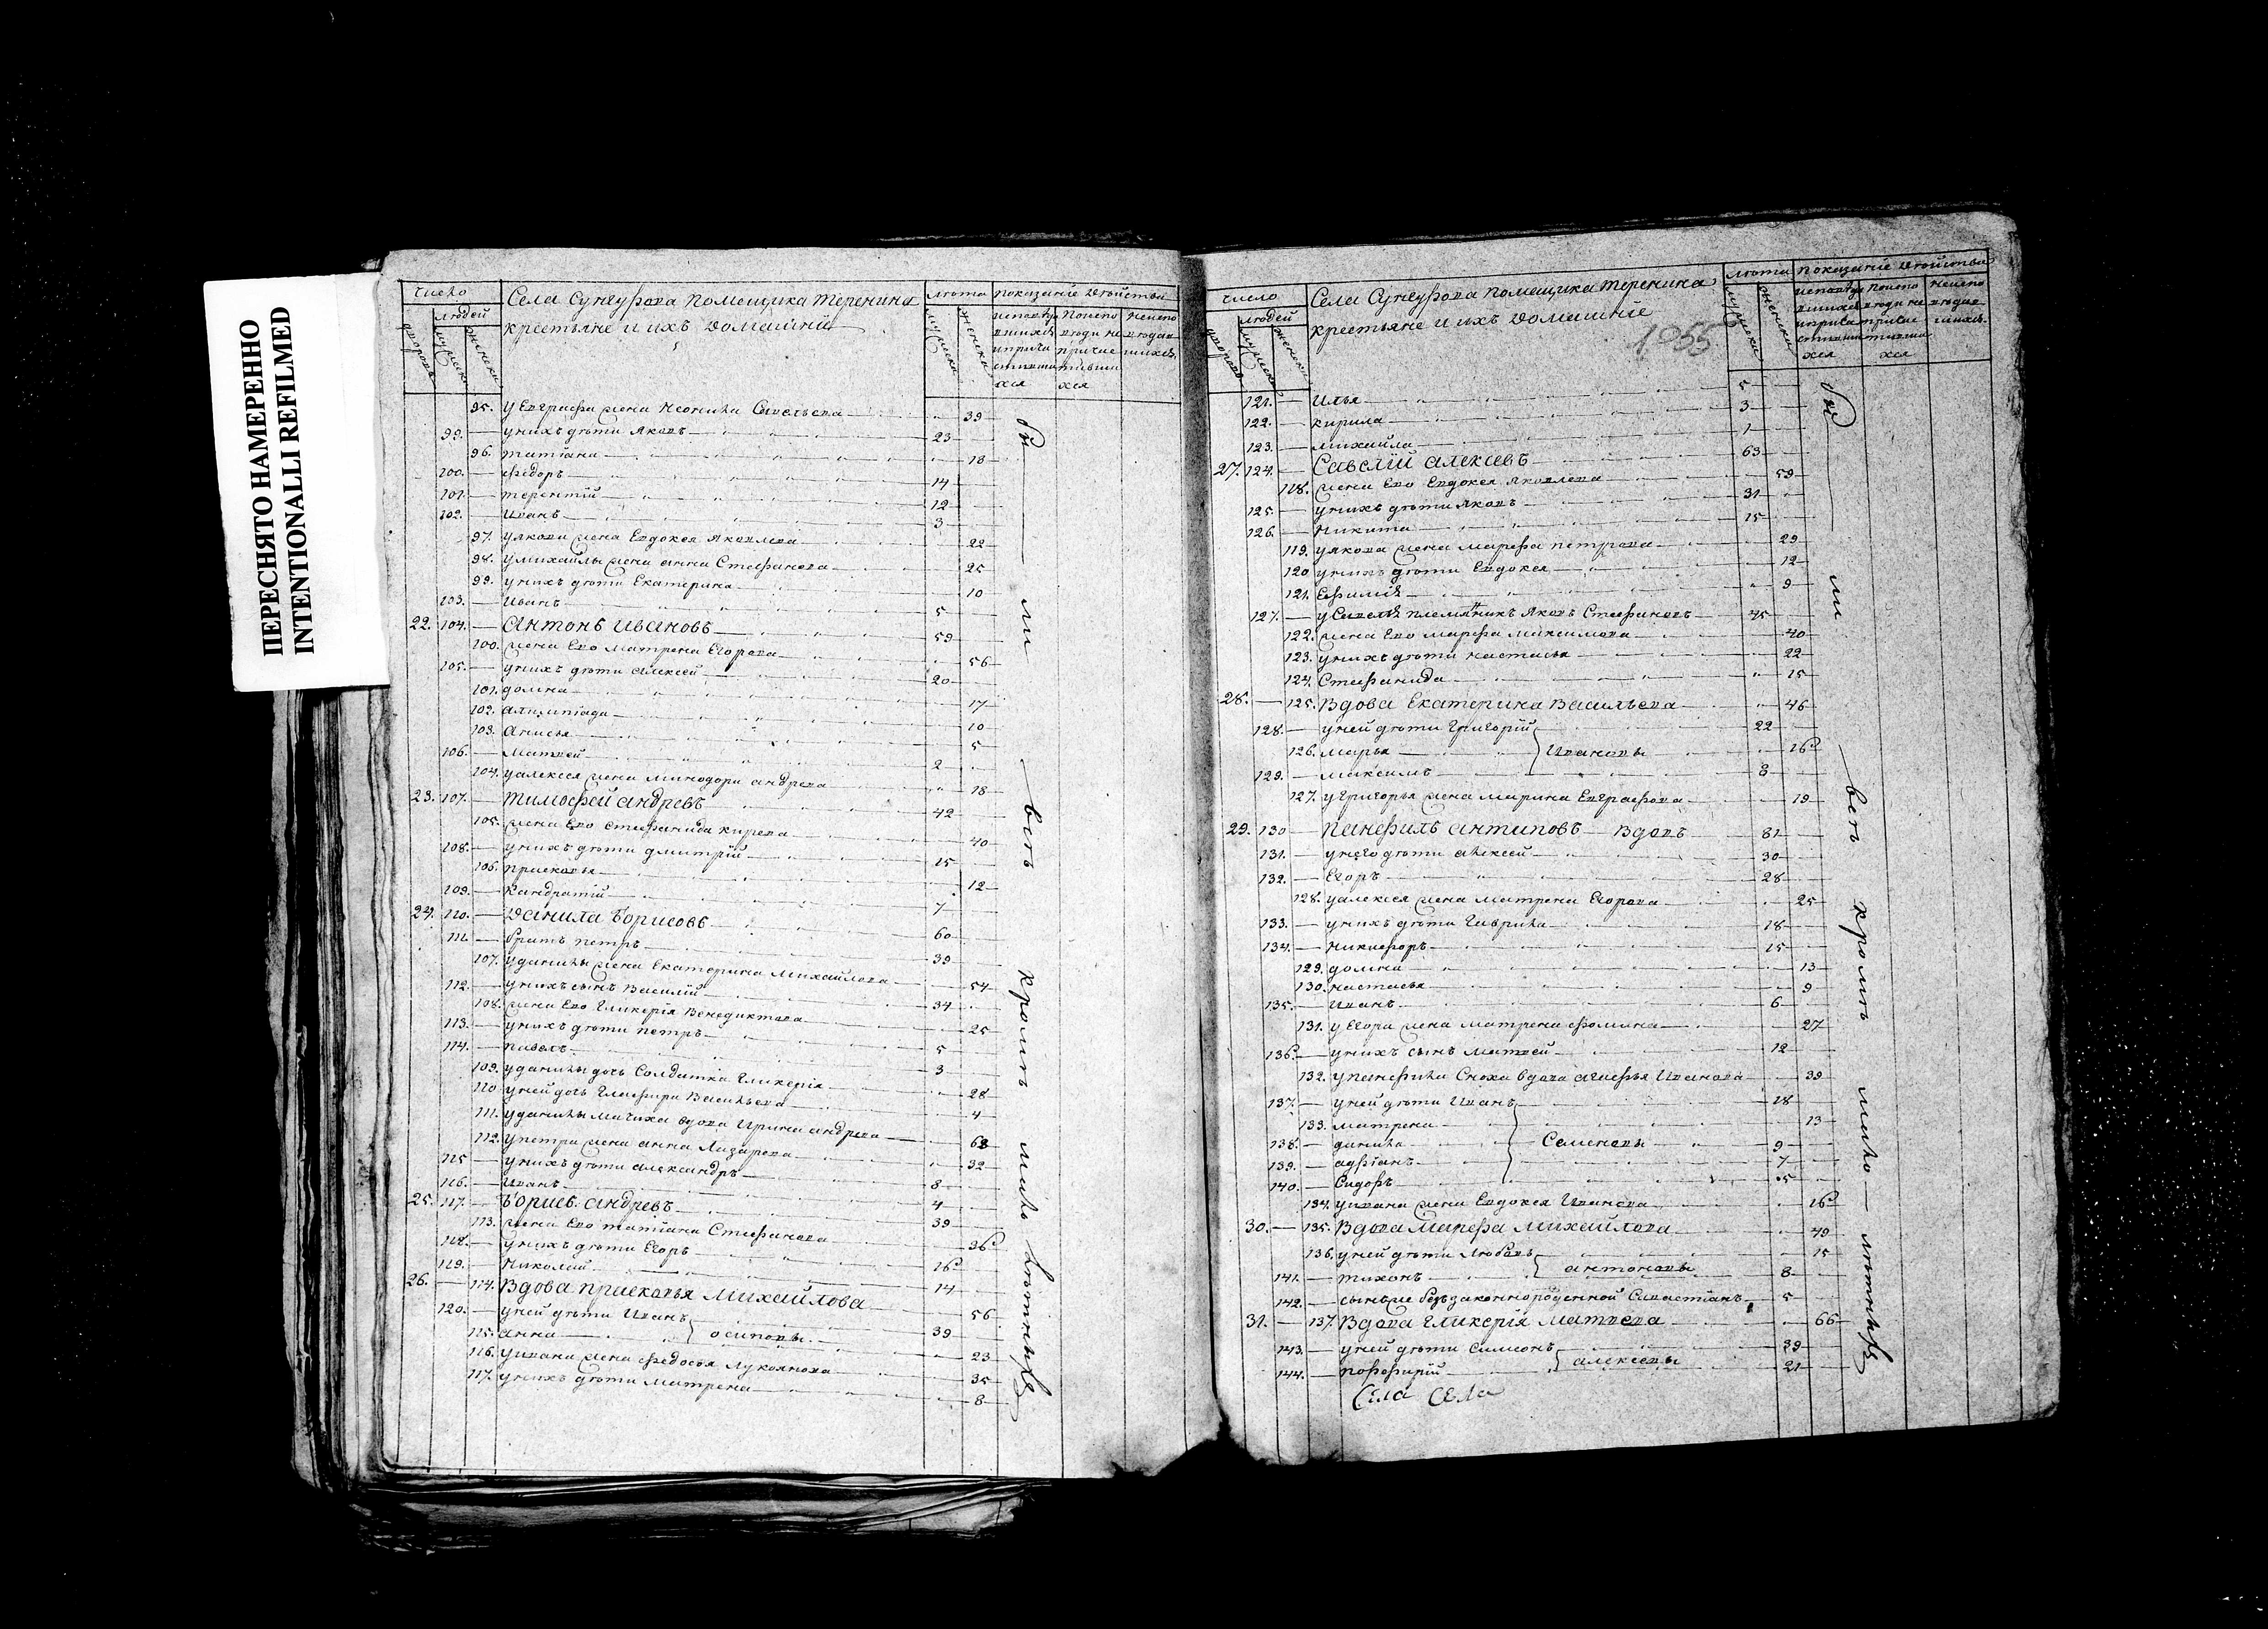 ПЕРЕСНЯТО НАМЕРЕННО
INTENTIONALLI REFILMED
число
людей
дворовъ
мужеска
женска
Села Сунгурова помещика Теренина
крестьяне и ихъ домашнія
лѣта
мужеска
женска
показаніе действа
95. у Евграфа жена Леонила Савельева 39
99. у нихъ дѣти Яковъ 23
96. Татіана 18
100. Федоръ 14
101. Терентій 12
102. Иванъ 3
97. у Якова жена Евдокея Яковлева 22
98. у Михайлы жена Анна Стефанова 25
99. у нихъ дѣти Екатерина 10
103. Иванъ 5
22. 104. Антонъ Ивановъ 59
100. жена Ево Матрена Егорова 56
105. у нихъ дѣти Алексей 20
101. Домна 17
102. Алимпіада 10
103. Анисья 5
106. Матвей 2
104. у Алексея жена Минодора Андрева 18
23. 107. Тимофей Андревъ 42
105. жена Ево Стефанида Кирева 40
108. у нихъ дѣти Дмитрій 15
106. Прасковья 12
109. Кандратій 7
24. 110. Данила Борисовъ 60
111. братъ Петръ 39
107. у Данилы жена Екатерина Михайлова 54
112. у нихъ сынъ Василій 34
108. жена Ево Гликерія Венедиктова 25
113. у нихъ дѣти Петръ 5
114. Павелъ 3
109. у Данилы дочь Солдатка Гликерія 28
110 у ней дочь Глафира Васильева 4
111. у Данилы мачиха вдова Ирина Андрева 63
112. у Петра жена Анна Лазарева 32
115 у нихъ дѣти Александръ 8
116. Иванъ 4
25. 117. Борисъ Андревъ 39
113. жена Ево Татіана Стефанова 36
118. у нихъ дѣти Егоръ 16
119. Николай 14
26. 114. Вдова Прасковья Михайлова 56
120. у ней дѣти Иванъ 39
115. Анна Осиповы 23
116. у Ивана жена Федосья Лукоянова 35
117. у нихъ дѣти Матрена 8
бы ли всѣ кромѣ мало лѣтныхъ
число
людей
дворовъ
мужеска
женска
Села Сунгурова помещика Теренина
крестьяне и ихъ домашніе
1055
лѣта
мужеска
женска
показаніе действа
121. Илья 5
122. Кирила 3
123. Михайла 1
27. 124. Савелій Алексевъ 63
118. жена Ево Евдокея Яковлева 59
125. у нихъ дѣти Яковъ 31
126. Никита 15
119. у Якова жена Марфа Петрова 29
120 у нихъ дѣти Евдокея 12
121. Ефимія 9
127. у Савелья племянникъ Яковъ Стефановъ 45
122. жена Ево Марфа Максимова 40
123. у нихъ дѣти Настасья 22
124. Стефанида 15
28. 125. Вдова Екатерина Васильева 46
128. у ней дѣти Григорій 22
126. Марья Ивановы 16
129. Максимъ 8
127. у Григорья жена Марина Евграфова 19
29. 130 Панфилъ Антиповъ вдовъ 81
131. у него дѣти Алексей 30
132. Егоръ 28
128. у Алексея жена Матрена Егорова 25
133. у нихъ дѣти Гаврила 18
134. Никифоръ 15
129. Домна 13
130. Настасья 9
135. Иванъ 6
131. у Егора жена Матрена Фомина 27
136. у нихъ сынъ Матвей 12
132. у Панфила Сноха вдова Агафья Иванова 39
137. у ней дѣти Иванъ 18
133. Матрена 13
138. Данила Семеновы 9
139. Адріанъ 7
140. Сидоръ 5
134. у Ивана жена Евдокея Иванова 16
30. 135. Вдова Марфа Михайлова 49
136. у ней дѣти Любовь 15
141. Тихонъ Антоновы 8
142. сынъ ее безъзаконнорожденной Савастіанъ 5
31. 137. Вдова Гликерія Матвева 66
143. у ней дѣти Симеонъ 39
144. Порфирій Алексевы 21
Села Села
бы ли всѣ кромѣ мало лѣтныхъ